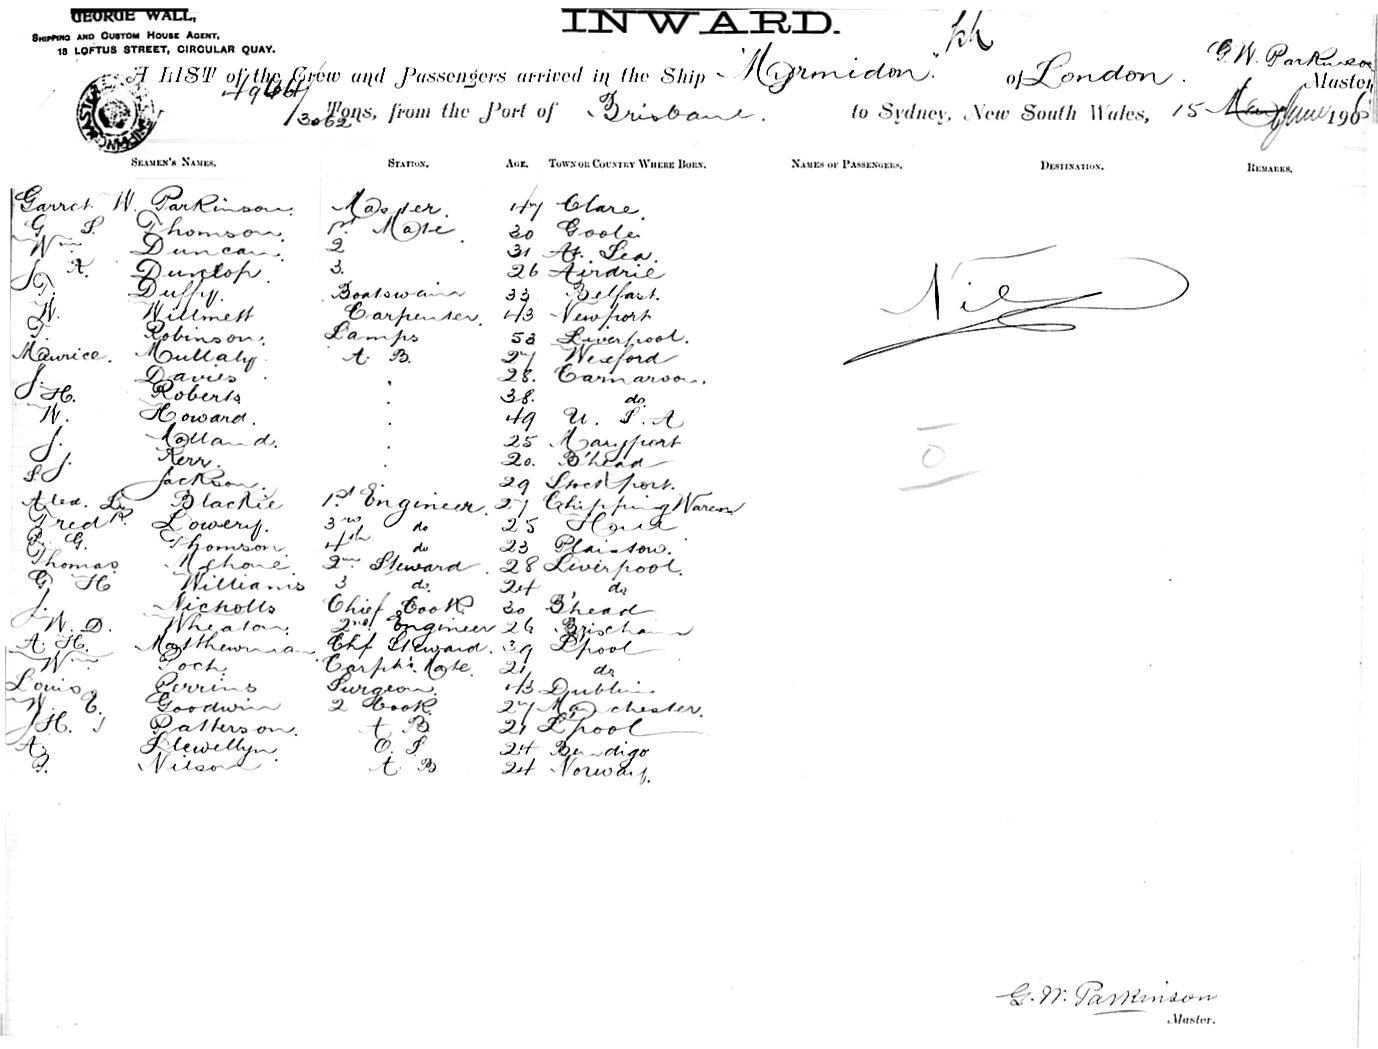 GEORGE WALL,
SHIPPING AND CUSTOM HOUSE AGENT,
18 LOFTUS STREET, CIRCULAR QUAY.
INWARD.
A LIST of the Crew and Passengers arrived in the Ship "Myrmidon" of London. G. W. Parkinson Master
3062 Tons, from the Port of Brisbane. to Sydney, New South Wales, 15 May June 190
SEAMEN'S NAMES. STATION. AGE. TOWN OR COUNTRY WHERE BORN. NAMES OF PASSENGERS. DESTINATION. REMARKS.
Garret W. Parkinson. Master. 47 Clare.
G S Thomson. 1st Mate 30 Goole
Wm Duncan. 2 31 At Sea.
J. A. Dunlop. 3. 26 Airdrie
T. Duffy. Boatswain 33 Belfast.
W. Willmett Carpenter. 43 Newport
T. Robinson. Lamps 53 Liverpool.
Maurice. Mullaly. A. B. 27 Wexford
J. Davies. 28. Carnarvon.
J. H. Roberts 38. do
W. Howard. 49 U. S. A
J. Molland. 25 Maryport
J. Kerr. 20. B'head
S. Jackson. 29 Stockport.
Alex. Blackie 1st Engineer. 27 Chipping
Fredk. Lowery. 3rd do 25
G. Thomson. 4th do 23 Plaistow.
Thomas 2nd Steward. 28 Liverpool.
G H Williams 3 do. 24 do
J. Nicholls Chief Cook 30 B'head
W. D. Wheaton. 2nd Engineer 26 Brixham
A. H. Matthewman Chf Steward. 39 L'pool
Wm Carptr's Mate. 21 do
Louis Perrins Surgeon. 43 Dublin
W. E. Goodwin 2 Cook. 27 Manchester.
J H. Patterson. A B 21 L'pool
A. Llewellyn O. S 24 Bendigo
Nilson A B 24 Norway.
Nil
G. W. Parkinson
Master.